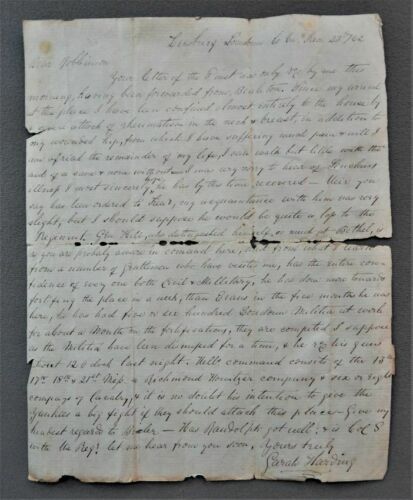 Leesburg Loudoun Co Va. Mar 23rd /62
Dear
Your letter of the was only by me this
morning, having been forwarded from. Since my arrival
at this place I have been confined almost entirely to the house by
a attack of rheumatism in the neck & breast, in addition to
my wounded hip, from which I have suffering much pain & will I
am afraid the remainder of my life, I can walk but little with the
aid of a cane & none without. I was very sorry to hear of
illness I most sincerely he has by this time recovered — you
say has been ordered to, my acquaintance with him was very
slight, but I should suppose he would be quite a loss to the
Regiment. Gen Hill, who distinguished himself so much at Bethel, is
as you are probably aware in command here, & from what I learn
from a number of Gentlemen who have visited me, has the entire confi-
dence of every one both Civil & Military, he has done more towards
fortifying the place in a week, than Evans in the five months he was
here, he has had five or six hundred Loudoun Militia at work
for about a Month on the fortifications, they are completed I suppose
as the Militia have been disbanded for a time, & he his guns
about 12 o clock last night. Hill's command consists of the 13
17th 18th & 21st Miss. a Richmond Howitzer company & six or eight
companys of Cavalry, & it is no doubt his intention to give the
Yankees a big fight if they should attack this place — Give my
kindest regards to — Has Randolph got well, & is Col S
with the Reg? let me hear from you soon,
Yours truly
Harding